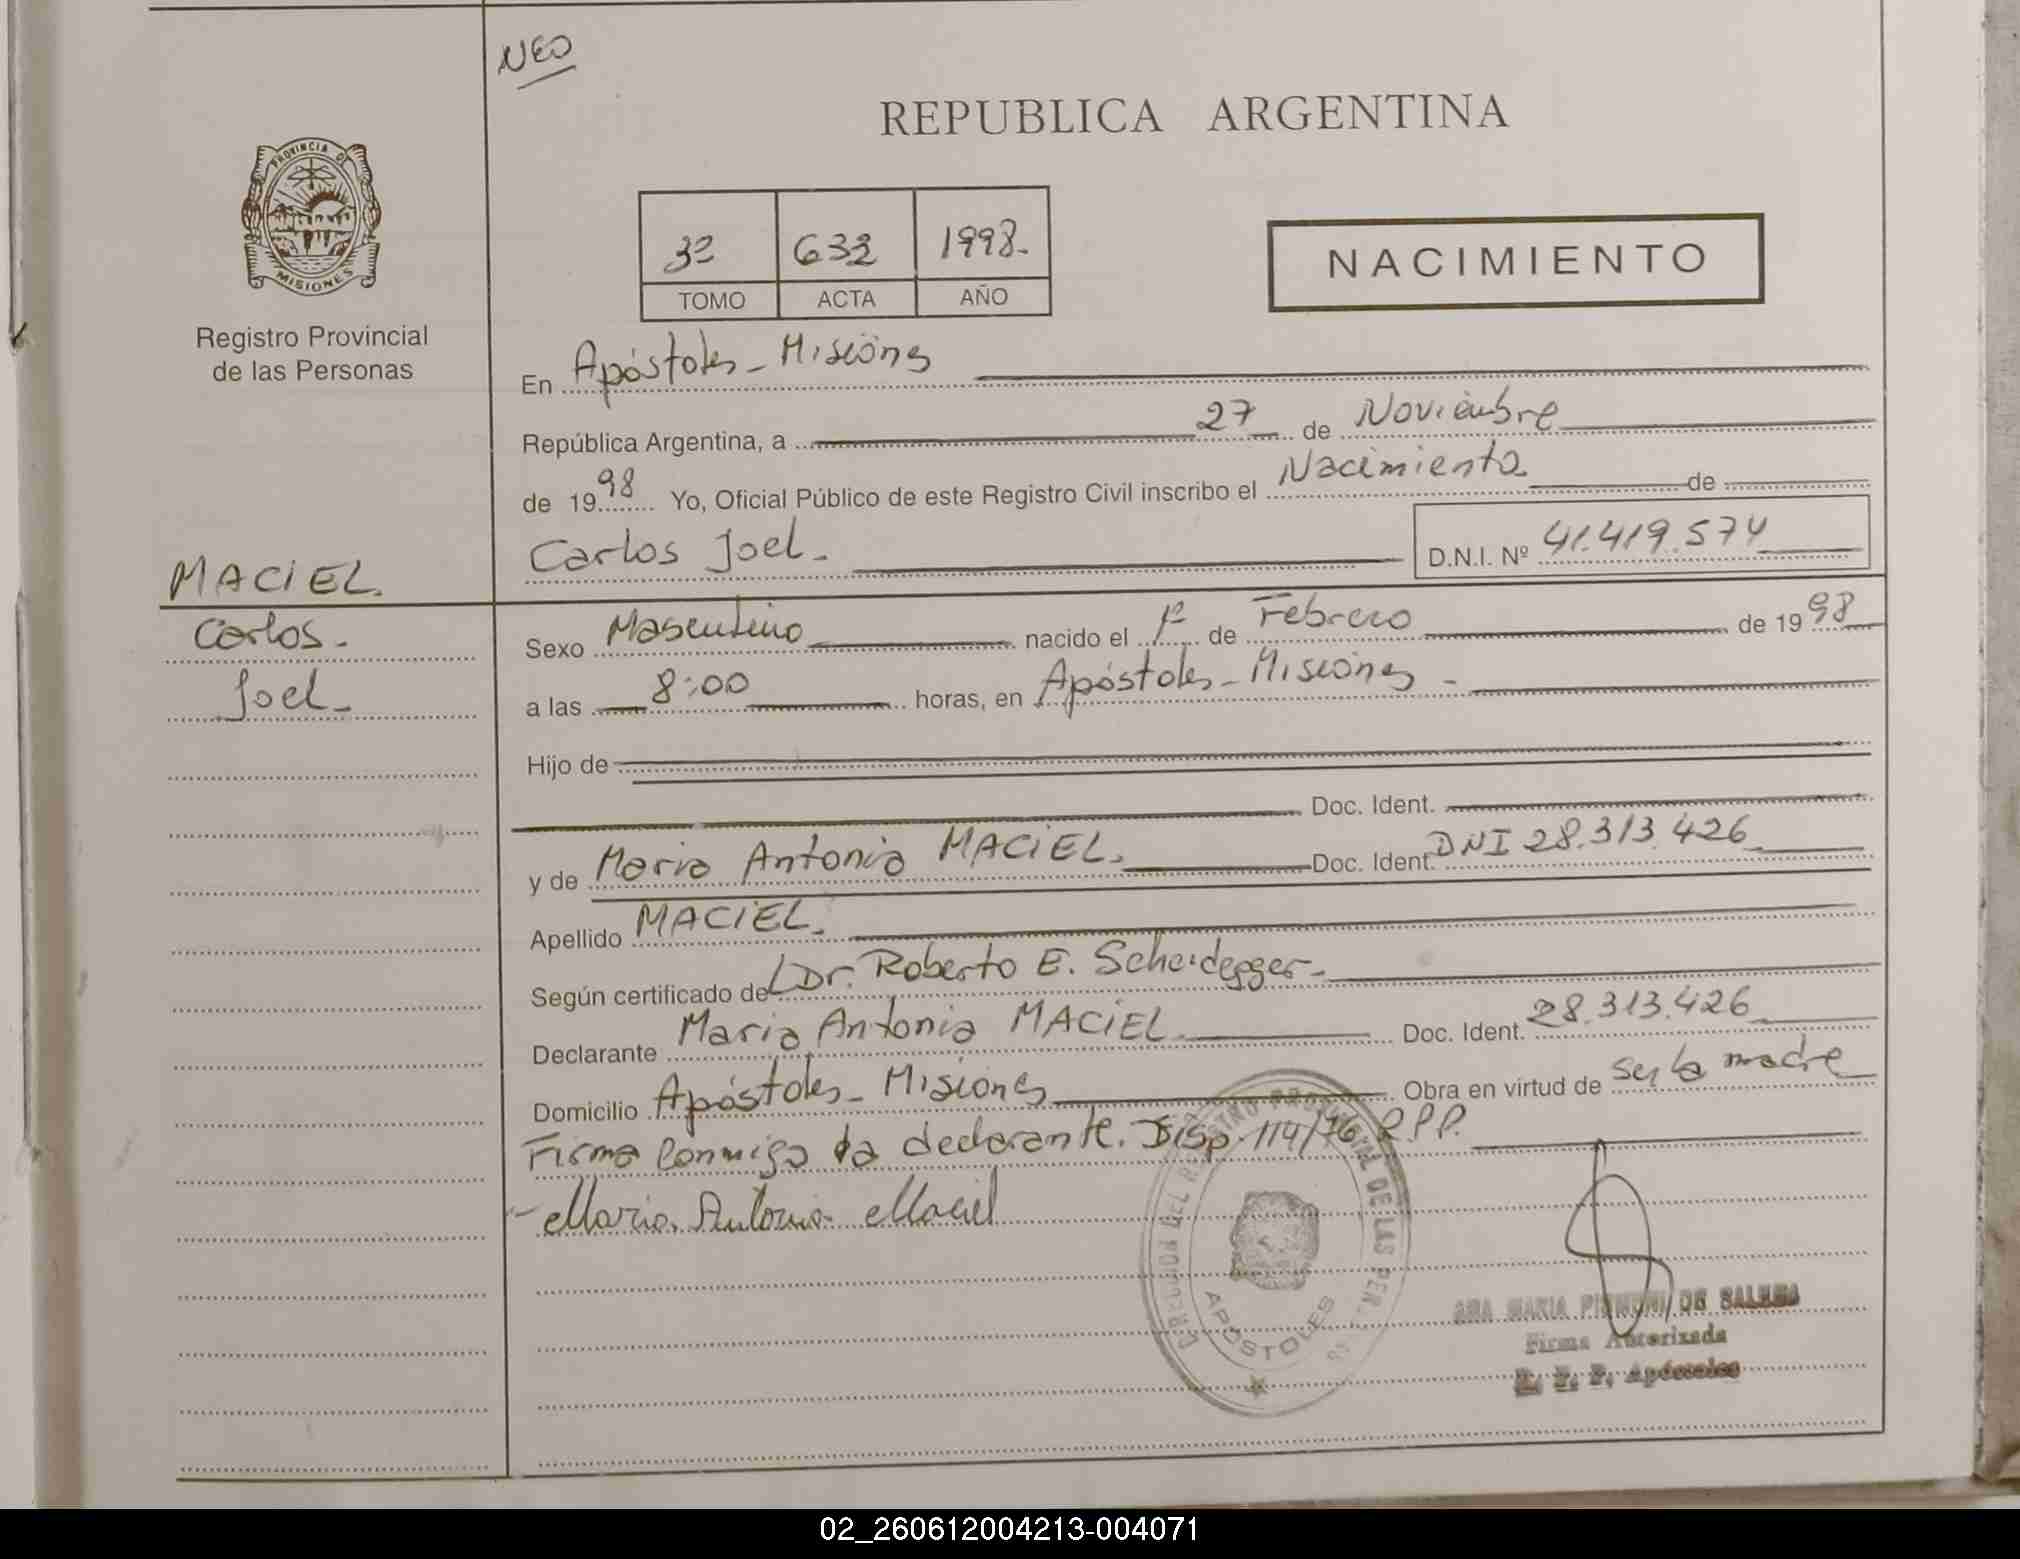 NEO
REPUBLICA ARGENTINA
PROVINCIA DE
MISIONES
3º 632 1998.-
TOMO ACTA AÑO
NACIMIENTO
Registro Provincial
de las Personas
En Apóstoles - Misiones
República Argentina, a 27 de Noviembre
de 1998 Yo, Oficial Público de este Registro Civil inscribo el Nacimiento de
Carlos Joel.- D.N.I. Nº 41.419.574
MACIEL.
Carlos.-
Joel.-
Sexo Masculino nacido el 1º de Febrero de 1998
a las 8:00 horas, en Apóstoles - Misiones -
Hijo de
Doc. Ident.
y de Maria Antonia MACIEL. Doc. Ident. DNI 28.313.426
Apellido MACIEL.
Según certificado del Dr. Roberto E. Scheidegger.-
Declarante Maria Antonia MACIEL Doc. Ident. 28.313.426
Domicilio Apóstoles - Misiones Obra en virtud de ser la madre
Firma conmigo la declarante. Disp. 114/76 R.P.P.
- Maria Antonia Maciel
APOSTOLES
ANA MARIA DE
Firma Autorizada
R. P. P. Apóstoles
02_260612004213-004071